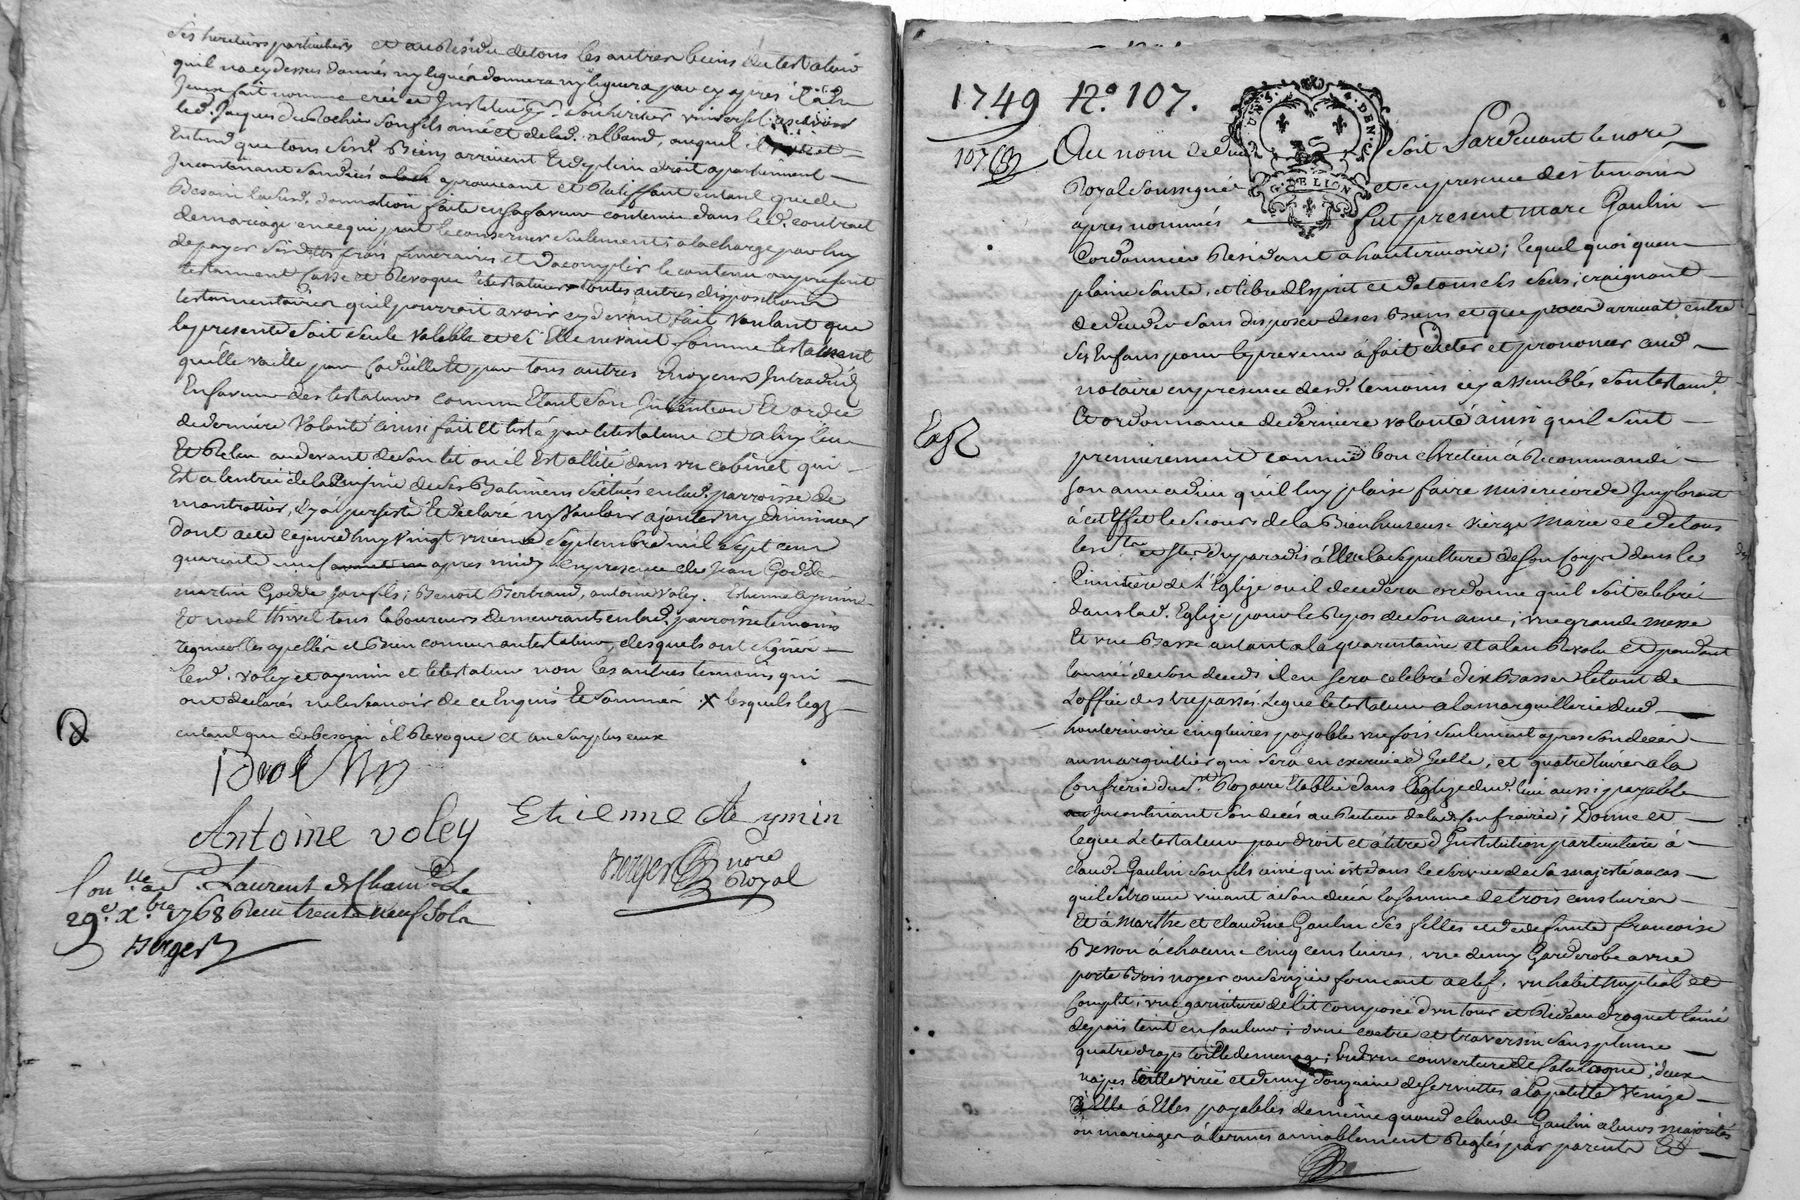 ses heritiers particuliers et au Residu de tous les autres biens du testateur
quil na cy dessus donnés ny legués donnera ny leguera par cy apres il a de
sa bouche nommé créé et Institué son heritier universel
led. Jacques Du Rochin son fils ainé et de lad. alband, auquel il
Entend que tous sesd. Biens arrivent En plein droit apartiennent
Incontinant son decés aprouvant et Ratiffiant entant que de
Besoin lasusd. donnation faite en sa faveur contenue dans led. contract
de mariage en ce qui peut le conserner seulement a la charge par luy
de payer ses dettes frais funeraires et dacomplir le contenu au present
testament Casse et Revoque le testateur toutes autres dispositions
testamentaires quil pourroit avoir cy devant fait Voulant que
la presente soit seule valable et si Elle ne vaut comme testament
quelle vaille par Codicille et par tous autres moyens Introduis
En faveur des testateurs comme Etant son Intention Et ordre
de derniere Volonté ainsi fait Et testé par le testateur et a luy leu
Et Releu au devant de son lit ou il Est allité dans un cabinet qui
Est a lentrée de la Cuisine de ses Batimens situés en lad. parroisse de
montrottier, Il y a persisté Et declaré ny Vouloir ajouter ny diminuer
Dont acte cejourdhuy vingt uneme septembre mil sept cens
quarante neuf apres midy En presence de Jean Godde
martin Godde son fils, Benoit Bertrand, antoine Voley, Etienne aymin
Et noel thivel tous laboureurs demeurants en lad. parroisse temoins
requis et les apellés et Bien connus au testateur, desquels ont signé
lesd. voley et aymin et le testateur non les autres temoins qui
ont declarés ne le scavoir de ce Enquis Et sommés X lesquels legs
entant que de besoin il Revoque et au surplus
Antoine voley
Etienne Aymin
Berger nore
Royal
Con.lle a St. Laurent de Cham.t Le
29e. Xbre 1768 Reçu trente neuf sols
Berger
1749 No. 107.
107
Au nom de Dieu soit Pardevant le nore
Royal soussigné et en presence des temoins
apres nommés fut present marc Gaulin
Cordonnier Residant a hauterivoire; lequel quoi quen
pleine santé, et libre d'Esprit et de tous ses sens, craignant
de deceder sans disposer de ses Biens et que procés arrivat entre
ses Enfans pour le prevenir à fait dicter et prononcer aud.
notaire en presence desd. temoins icy assemblés son testamt.
Et ordonnance de derniere volonté ainsi quil suit
premierement comme bon chretien à Recommandé
son ame a dieu qu'il luy plaise faire misericorde Implorant
à cet Effet le secours de la Bienheureuse Vierge Marie et de tous
les sts et stes du paradis à Elu la sepulture de son Corps dans le
Cimitiere de l'Eglize ou il decedera ordonne quil soit celebré
dans lad. Eglize pour le Repos de son ame, une grande messe
Et une Basse autant a la quarantaine et a lan Revolu et pendant
lannée de son decés il en sera celebré dix Basses letout de
Loffice des trepassés. Legue le testateur a la marguillerie dud.
hauterivoire cinq livres payable une fois seulement apres son decés
au marguillier qui sera en exercice d'Icelle, et quatre livres a la
Confrerie du st. Rosaire Etablie dans l'eglize dud. lieu aussi payable
Incontinant son decés au Recteur de lad. Confrairie; Donne et
legue le testateur par droit et a titre d'Institution particuliere à
claude Gaulin son fils ainé qui est dans le service de sa majesté au cas
quil se trouve vivant a son decés la somme de trois cens livres
Et à Marthe et claudine Gaulin ses filles et de defunte francoise
Besson à chacune cinq cens livres, une demy Garderobe a une
porte Bois noyer ou serizier fermant a clef, un habit Nuptial et
Complet, une garniture de lit composée d'un tour et Rideau droguet laine
de pais teint en couleur; dune coetre et traversin sans plume
quatre draps toille de menage; Et dune couverture de Catalogne; deux
napes toille virée et demy douzaine de serviettes a la petitte Venize
à Elles payables de meme quaud. claude Gaulin a leurs majorités
ou mariages à termes amiablement Reglés par parents Et